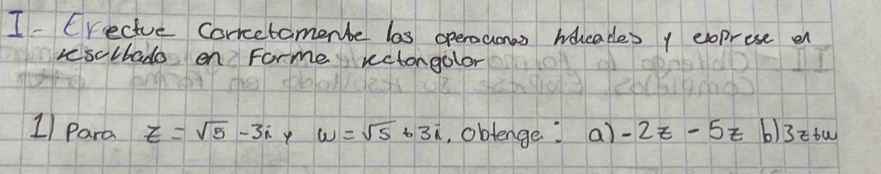 I- Efectue Correctamente las operaciones indicadas y exprese el
resultado en Forma rectangular
1) Para z = √5 - 3i y w = √5 + 3i, obtenga: a) -2z - 5z b) 3z+w